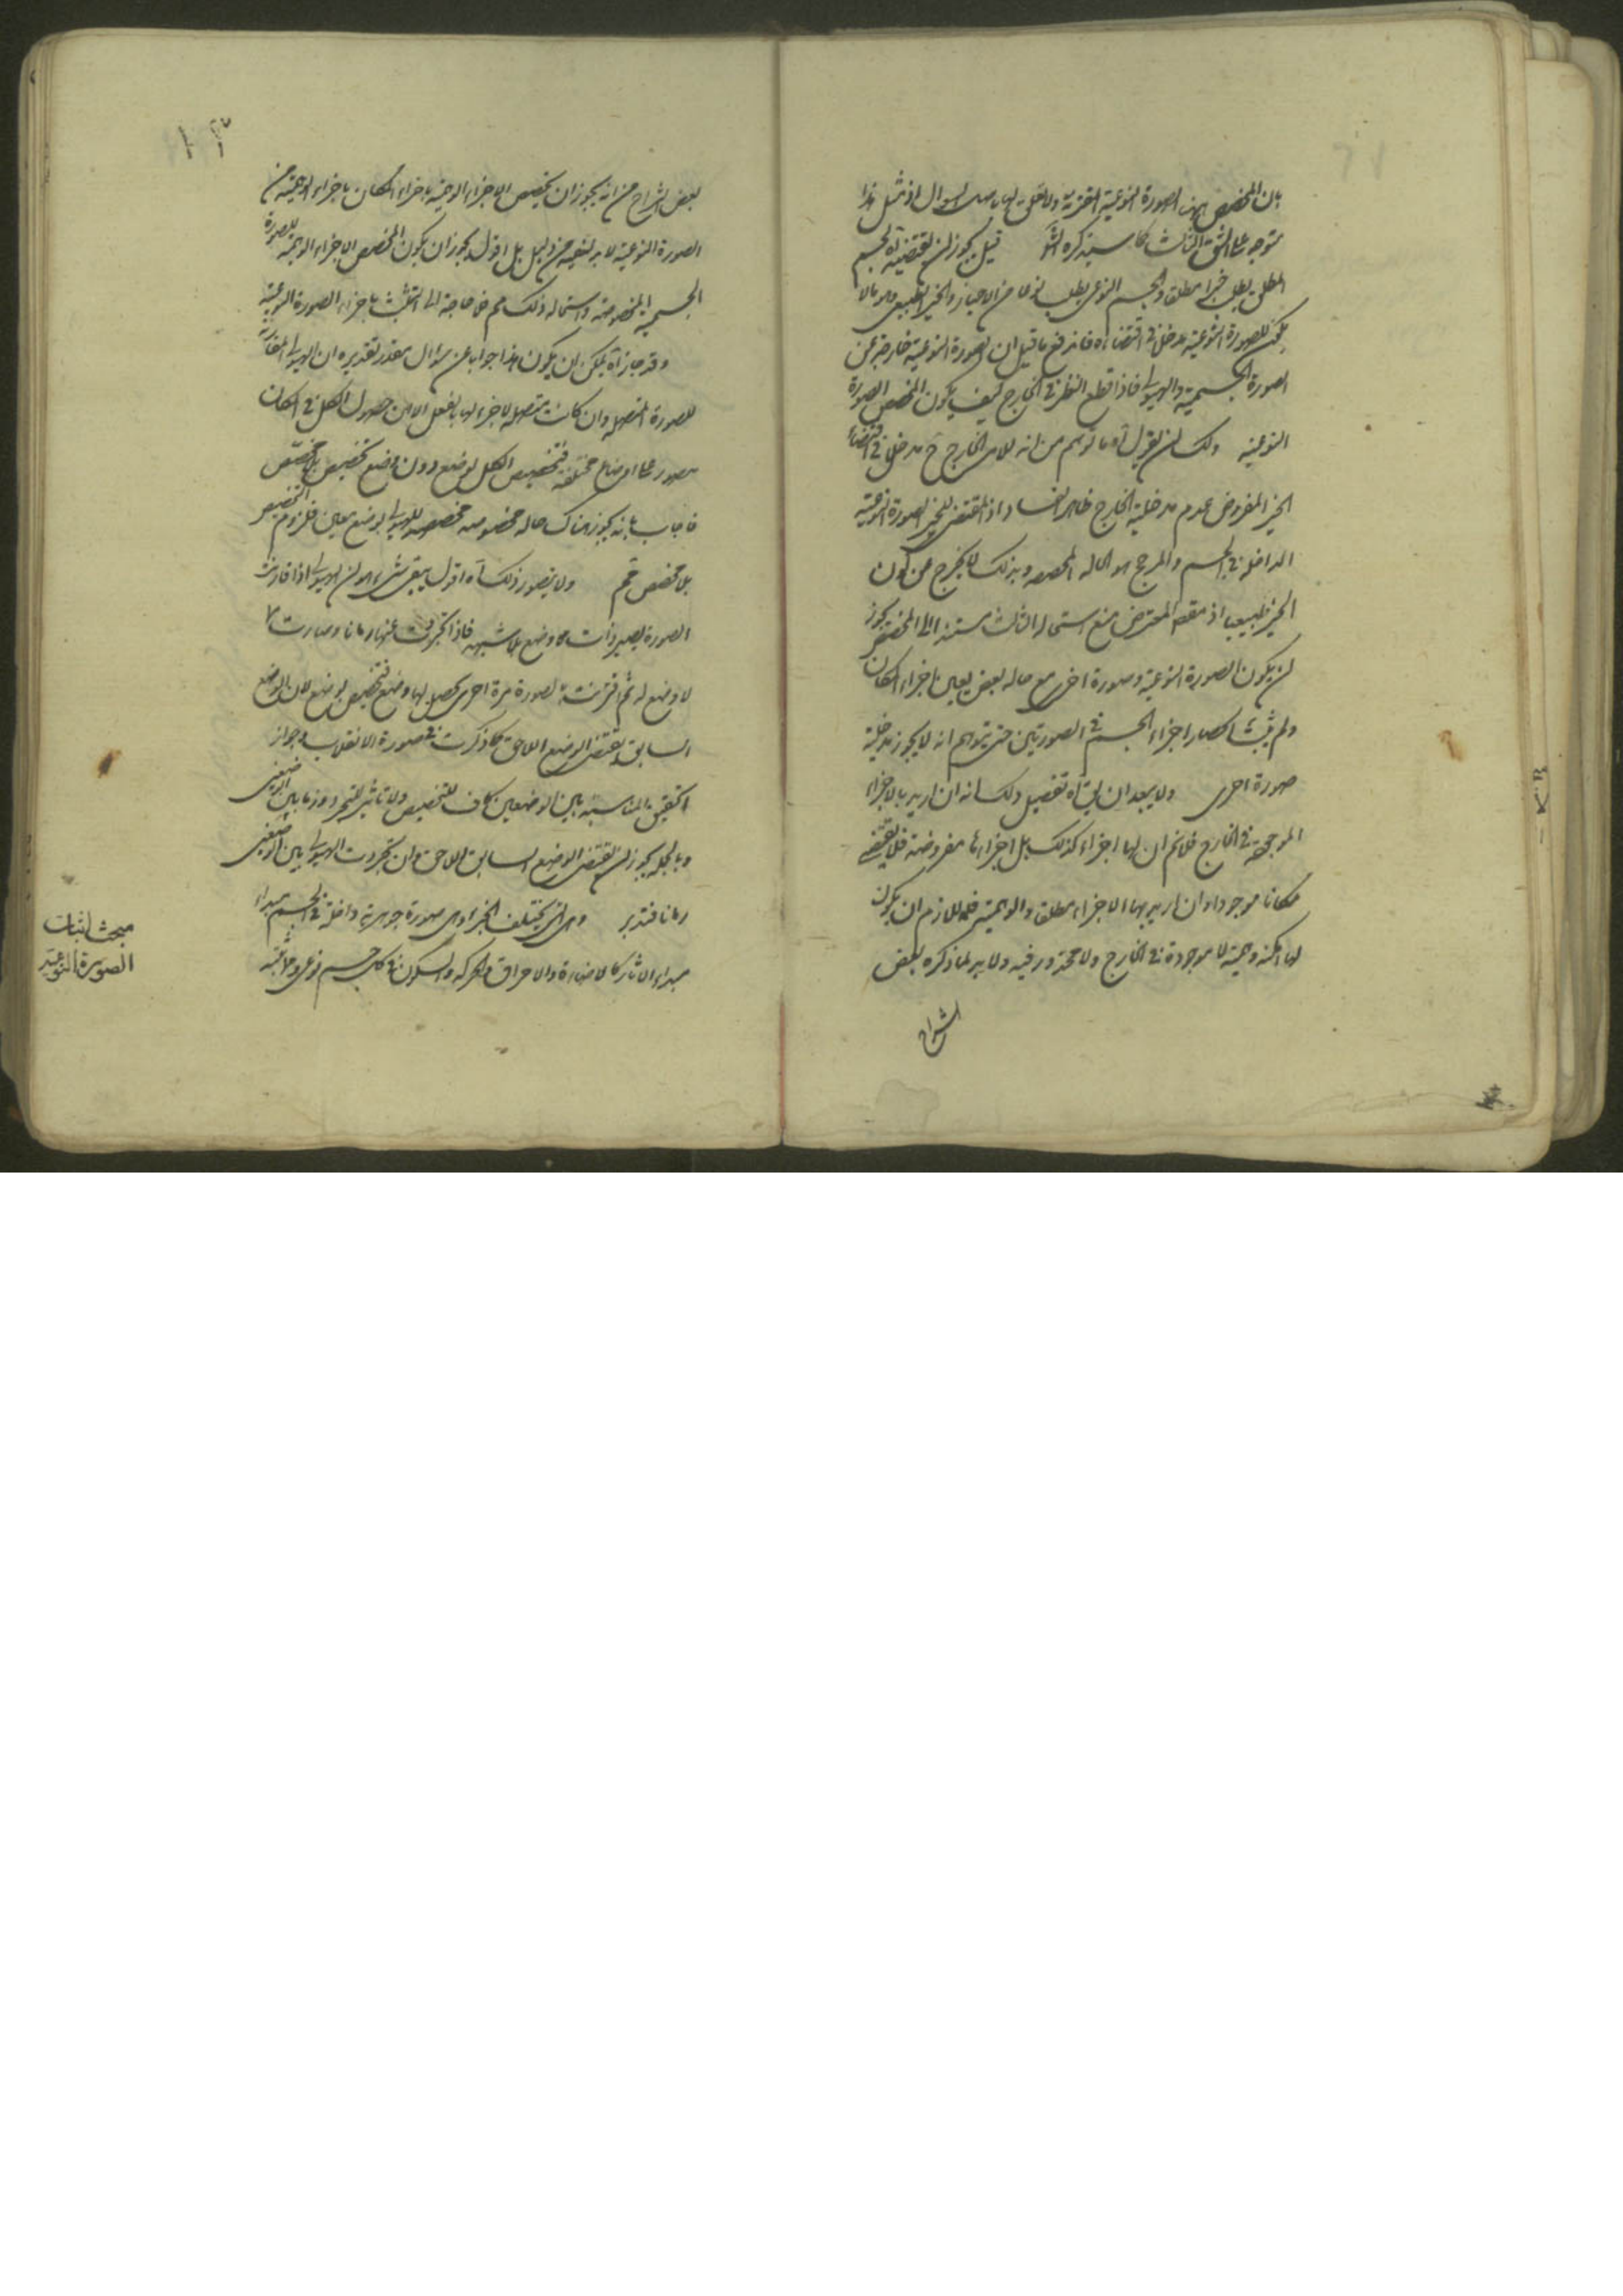 بان المخصص هو الصورة النوعية المقترنة ولا تعلق لها بهذا السوال اذ مثل هذا
متوجه على الشق الثالث كما سيذكره الش قيل يجوز ان يقتضيه آه الجسم
المطلق يطلب حيزا مطلقا والجسم النوعي يطلب نوعا من الاحياز والحيز الطبيعي هو ما لا
يكون للصورة النوعية مدخل في اقتضاءه فاندفع ما قيل ان الصورة النوعية خارجة عن
الصورة الجسمية والهيولى فاذا قطع النظر في الخارج كيف يكون المخصص الصورة
النوعية ولك ان تقول آه ما توهم من انه للامر الخارج ح مدخل في اقتضاء
الحيز المفروض عدم مدخلية الخارج ظاهر الفساد اذ المقتضي للحيز الصورة النوعية
الداخلة في الجسم والمرجح هو الحالة المخصصة وبذلك لا يخرج عن كون
الحيز طبيعيا اذ مقصود المعترض منع استحالة الثالث مستندا الى المخصص يجوز
ان يكون الصورة النوعية وصورة اخرى مع حاله بعض يعين باجزاء المكان
ولم يثبت انحصار اجزاء الجسم في الصورتين حتى يتوهم انه لا يجوز مدخلية
صورة اخرى ولا يبعد ان يق آه تفصيل ذلك انه ان اريد بالاجزاء
الموجودة في الخارج فلانم ان لها اجزاء كذلك بل اجزاءها مفروضة فلا يقتضي
مكانا موجودا وان اريد بها الاجزاء مطلقا والوهمية فاللازم ان يكون
لها امكنة وهمية لا موجودة في الخارج ولا محذور فيه ولا يرد ما ذكره بعض
الشراح
١٣
بعض الشراح من انه يجوز ان يخصص الاجزاء الوهمية باجزاء المكان باجزاء الوهمية من
الصورة النوعية لا بد لنفيه من دليل بل اقول يجوز ان يكون المخصص الاجزاء الوهمية للصورة
الجسمية المخصوصة واستحالة ذلك مم فلا حاجة الى التشبث باجزاء الصورة النوعية
وقد جاز آه يمكن ان يكون هذا جوابا عن سؤال مقدر تقديره ان الهيولى المقارنة
للصورة المتصلة وان كانت متصلة لاجزء لها بالفعل الا ان حصول الكل في المكان
متصور على اوضاع مختلفة فتخصيص الكل بوضع دون وضع تخصيص بلا مخصص
فاجاب بانه يجوز هناك حالة مخصوصة مخصصة للهيولى بوضع معين فلزوم التخصيص
بلا مخصص مم ولا يتصور ذلك آه اقول يبقى شيء هو ان الهيولى اذا قارنت
الصورة يصير ذات وضع بلا شبهة فاذا تجردت عنها زمانا وصارت
لا وضع له ثم اقترنت بالصورة مرة اخرى يحصل لها وضع فتخصيص بوضع لان الوضع
السابق يقتضي الوضع اللاحق كما ذكرت في صورة الانقلاب وجواز
التحقيق المناسبة بين الوضعين كاف للتخصيص ولا تاثير للتجرد زمانا بين الوضعين
وبالجملة يجوز ان يقتضي الوضع السابق اللاحق وان تجردت الهيولى بين الوضعين
زمانا فتدبر وهي التي تختلف الخ اي صورة جوهرية داخلة في الجسم مبداء
مبداء الاثار كالاضاءة والاحراق والحركة والسكون في كل جسم نوعي
مبحث اثبات
الصورة النوعية